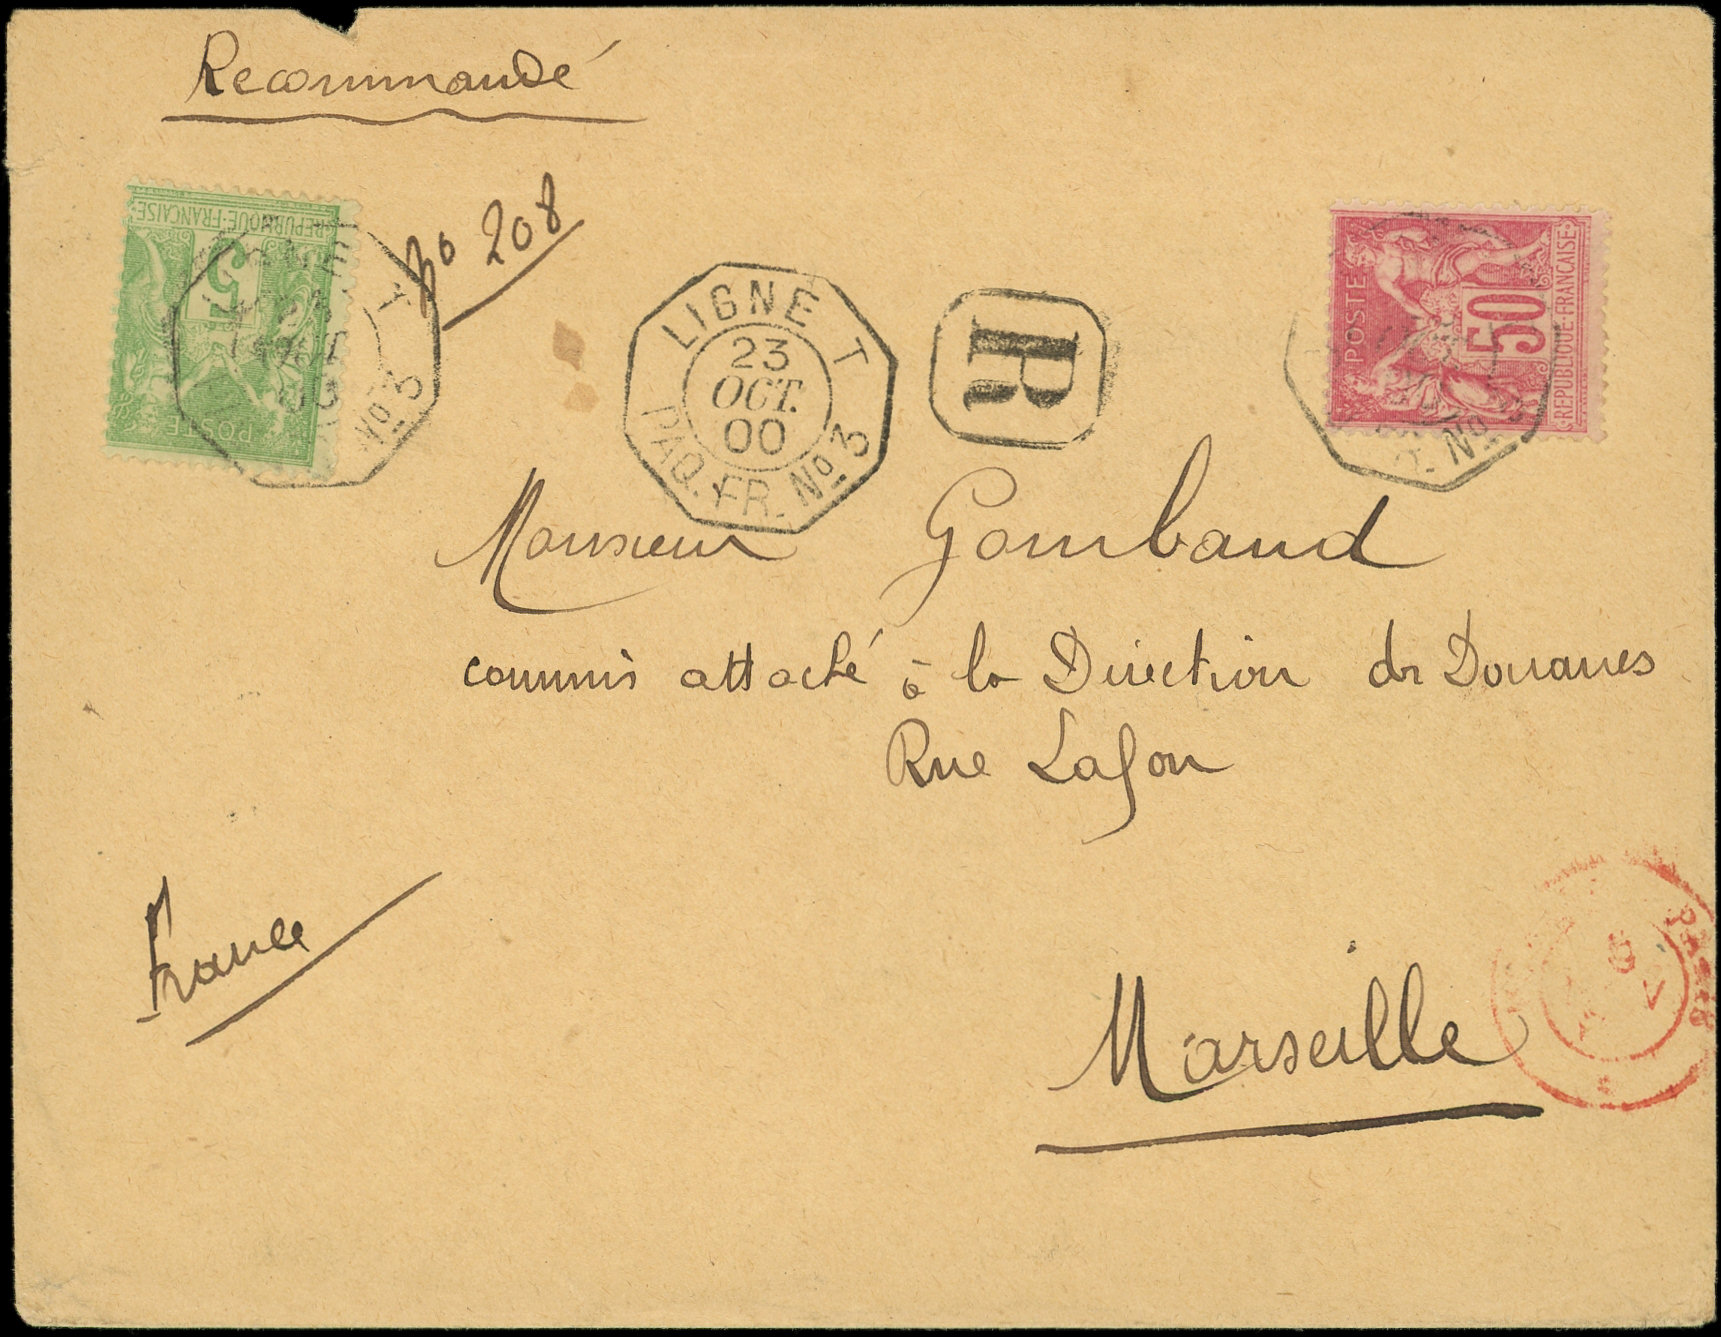 Recommandé
No 208
REPUBLIQUE·FRANÇAISE
5
POSTE
T
No 3
LIGNE T
23
OCT.
00
PAQ. FR. No 3
R
POSTE
50
REPUBLIQUE·FRANÇAISE
Q. No
Monsieur Gombaud
commis attaché à la Direction des Douanes
Rue Lafon
France
Marseille
PARIS